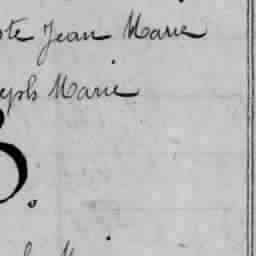 ste Jean Marie
eph Marie
3.